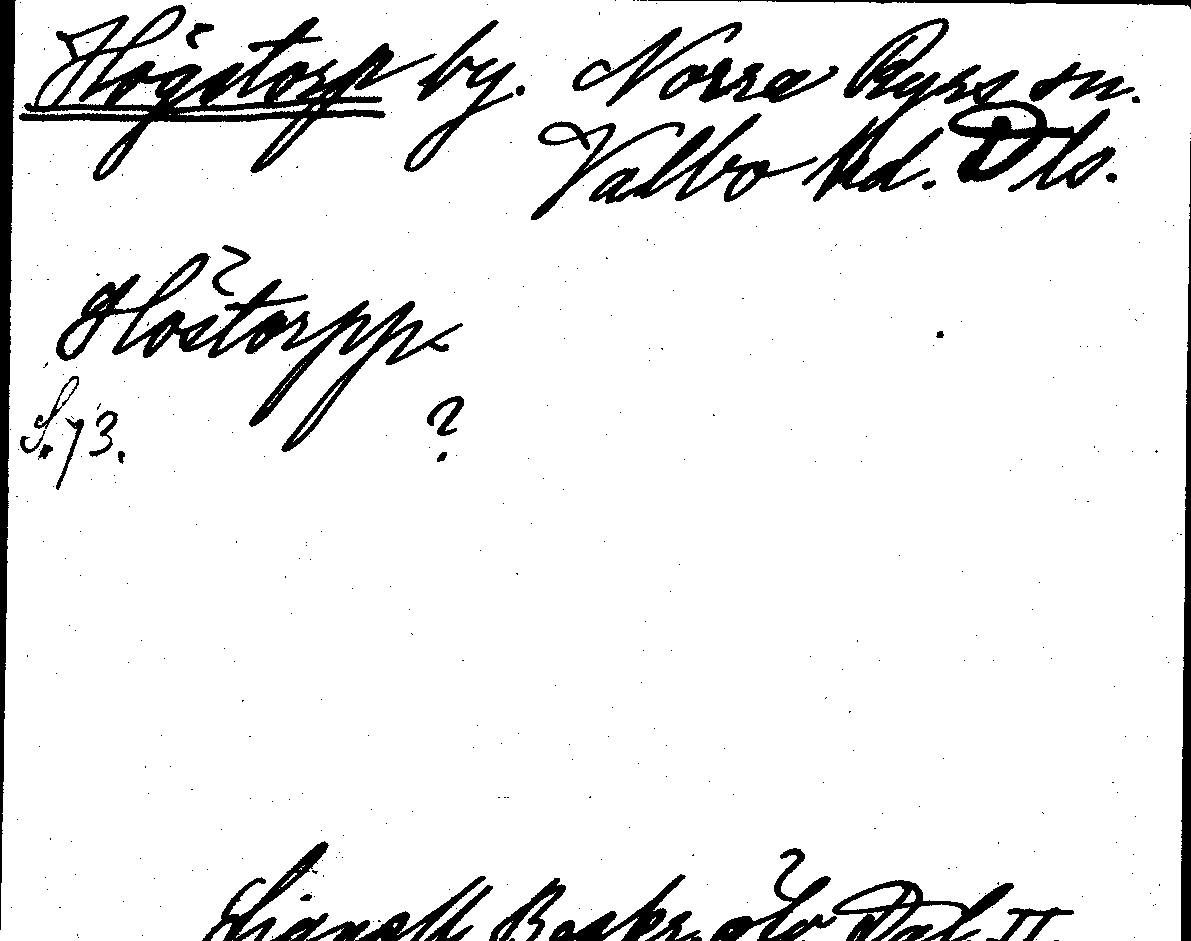 Högstorp by. Norra Ryrs sn.
Valbo hd. Dls.
Höstorpp
S. 73. ?
Lignell Beskr. öfv Dal II.